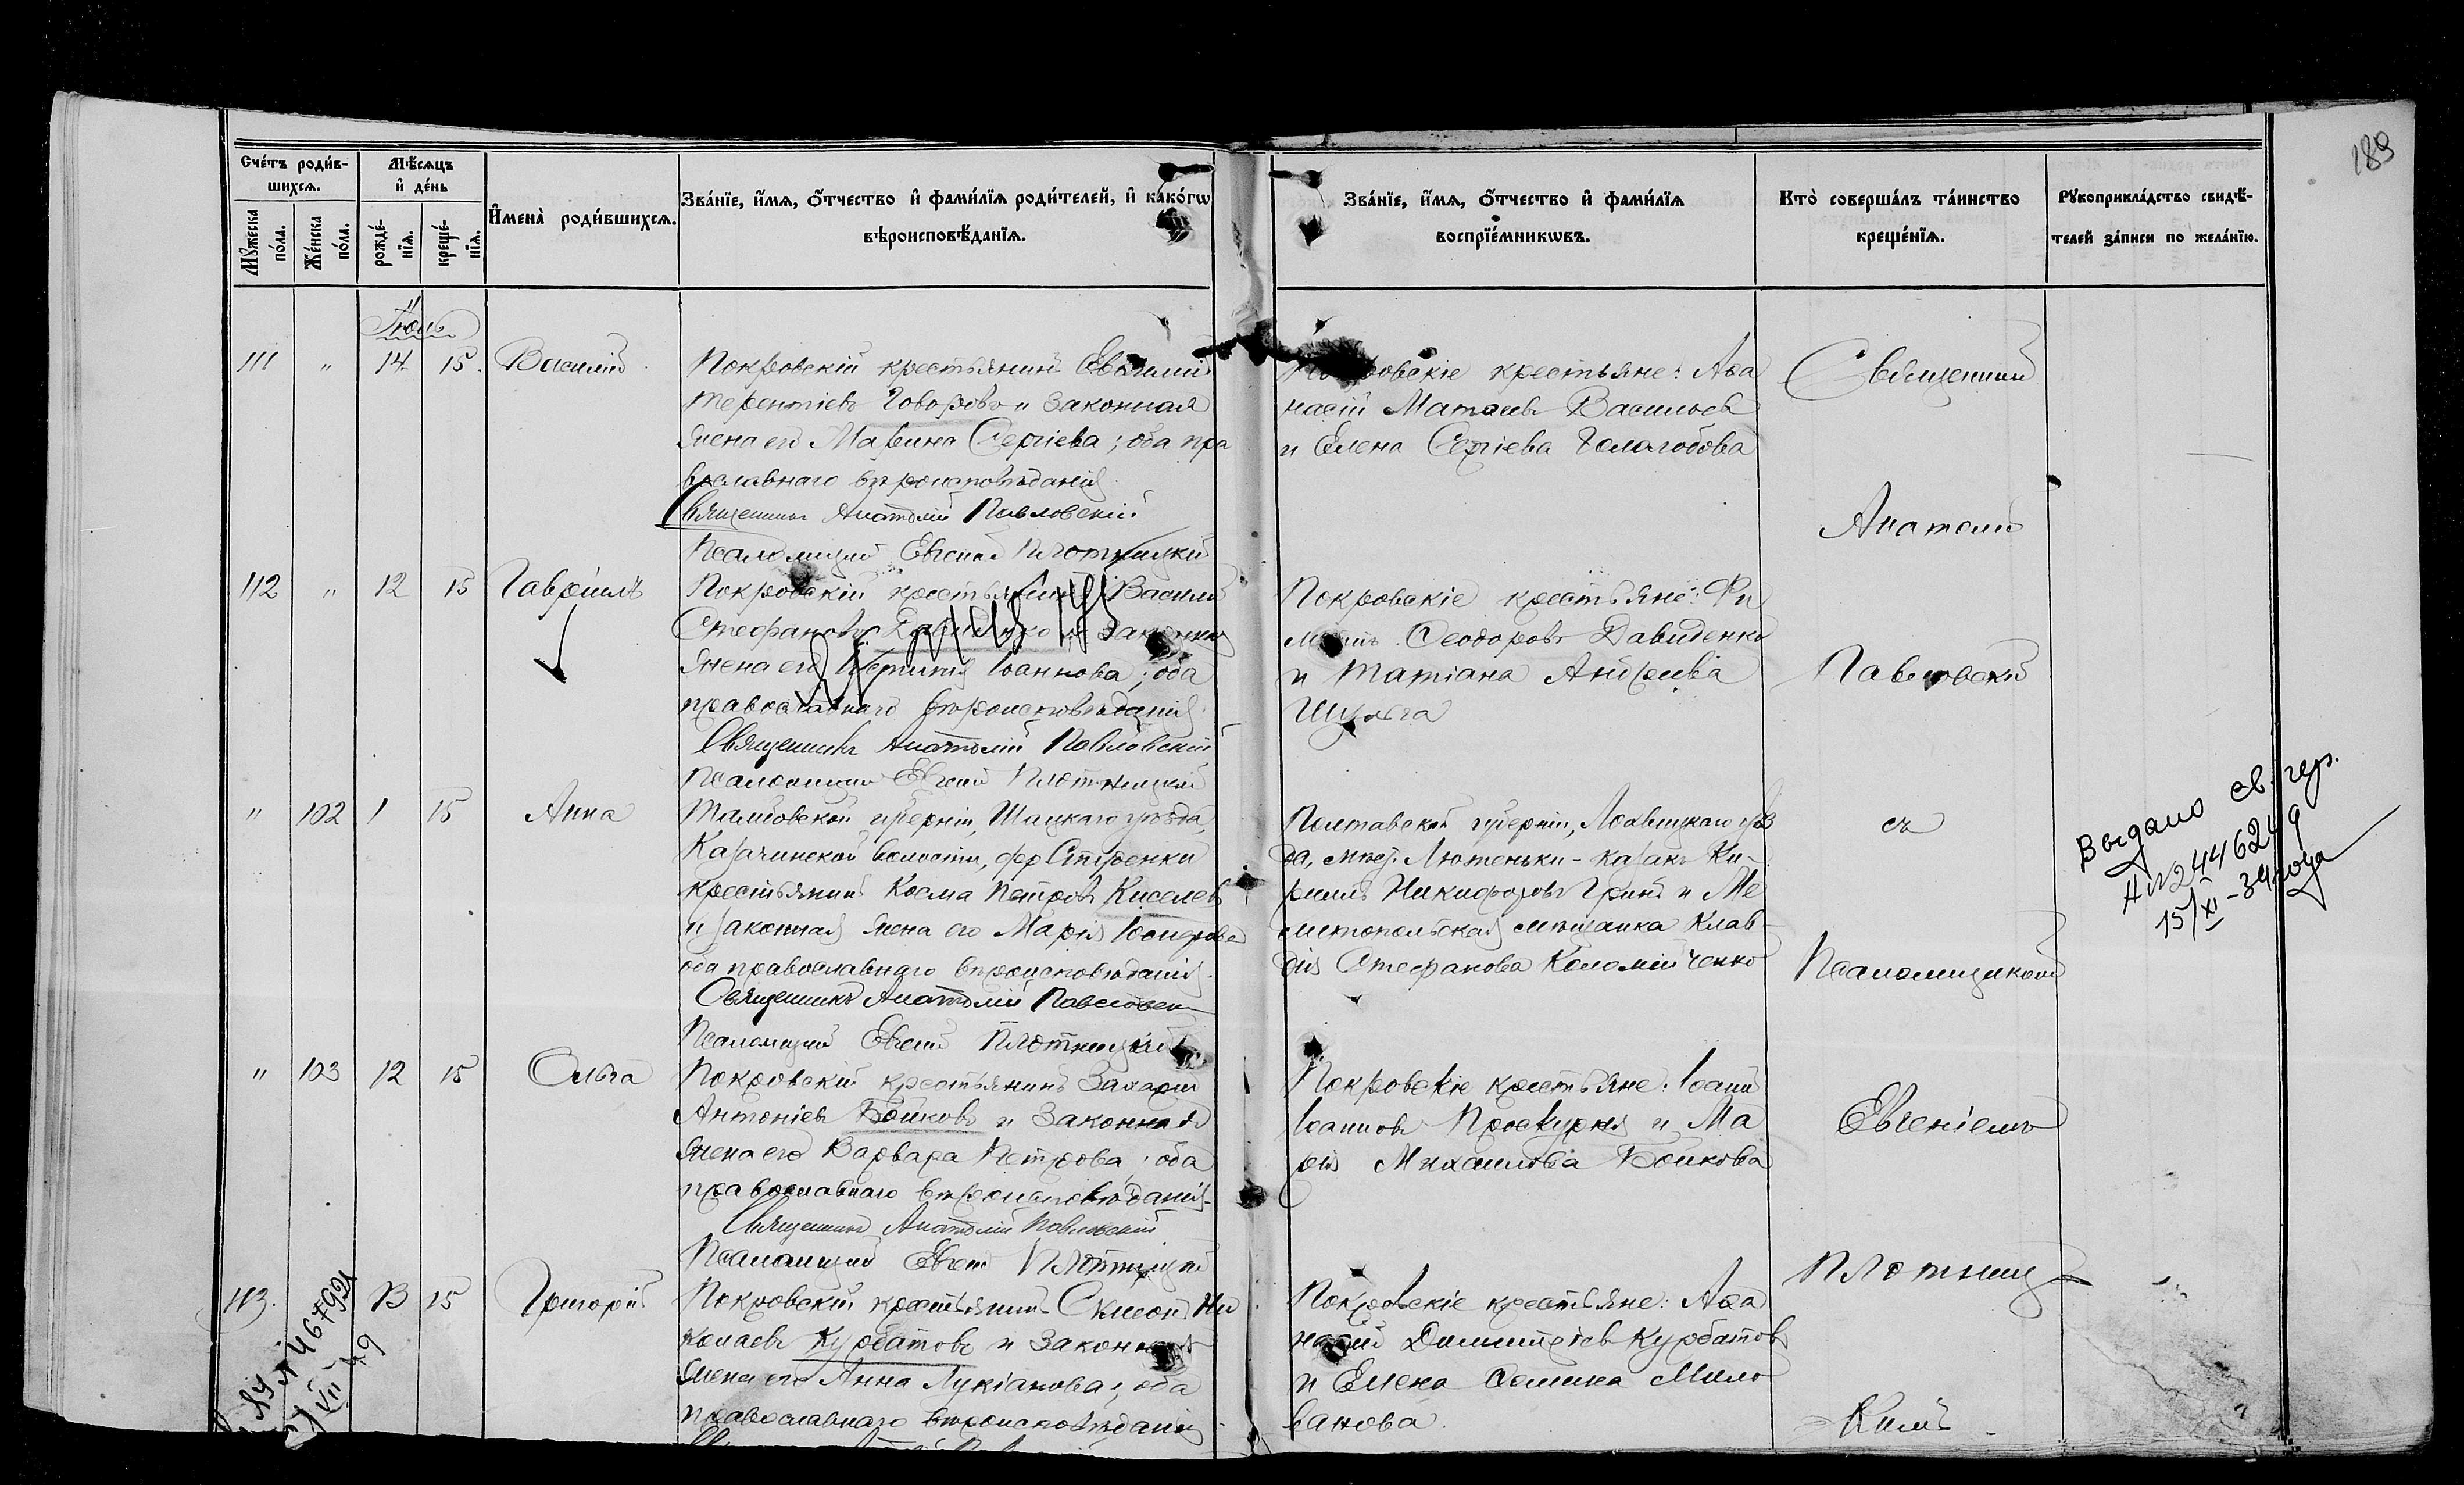 189
Счетъ родив-
шихся.
Мѣсяцъ
и день
Мужеска
пола.
Женска
пола.
рожде-
нія.
креще-
нія.
Имена родившихся.
Званіе, имя, отчество и фамилія родителей, и какого
вѣроисповѣданія.
Званіе, имя, отчество и фамилія
воспріемниковъ.
Кто совершалъ таинство
крещенія.
Рукоприкладство свидѣ-
телей записи по желанію.
Іюль
111 " 14 15. Василій
Покровскій крестьянинъ Евѳимій
Терентіевъ Говоровъ и законная
жена его Марина Сергіева; оба пра
вославнаго вѣроисповѣданія
Священникъ Анатолій Павловскій
Псаломщикъ Евгеній Плотницкій
Покровскіе крестьяне: Аѳа
насій Матѳеевъ Васильевъ
и Елена Сергіева
112 " 12 15 Гавріилъ
Покровскій крестьянинъ Василій
Стефановъ и законная
жена его Іоаннова; оба
православнаго вѣроисповѣданія
Священникъ Анатолій Павловскій
Псаломщикъ Евгеній Плотницкій
Покровскіе крестьяне: Фи
Ѳеодоровъ Давиденко
и Татіана Андреева
Шульга
" 102 1 15 Анна
Тамбовской губерніи, Шацкаго уѣзда,
Казачинской волости, дер. Студенки
крестьянинъ Косма Петровъ Киселевъ
и законная жена его Марія
оба православнаго вѣроисповѣданія.
Священникъ Анатолій Павловскій
Псаломщикъ Евгеній Плотницкій
Полтавской губерніи, Лохвицкаго уѣз
да, мѣст. Лютеньки - казакъ Ки-
риллъ Никифоровъ Гринь и Ме
литопольская мѣщанка Клав-
дія Стефанова Коломійченко
" 103 12 15 Ольга
Покровскій крестьянинъ Захарій
Антоніевъ Бойковъ и законная
жена его Варвара Петрова; оба
православнаго вѣроисповѣданія.
Священникъ Анатолій Павловскій
Псаломщикъ Евгеній Плотницкій
Покровскіе крестьяне: Іоаннъ
Іоанновъ Проскурня и Ма
рія Михаилова Бойкова
113. 13 15 Григорій
Покровскій крестьянинъ Симеонъ Ни
колаевъ Курбатовъ и законная
жена его Анна Лукіанова; оба
православнаго вѣроисповѣданія
Покровскіе крестьяне: Аѳа
насій Димитріевъ Курбатовъ
и Елена Ѳомина Мило
ванова.
Священникъ
Анатолій
Павловскій
съ
Псаломщикомъ
Евгеніемъ
Плотниц-
кимъ
Выдано св. гер.
15/XI-34 года